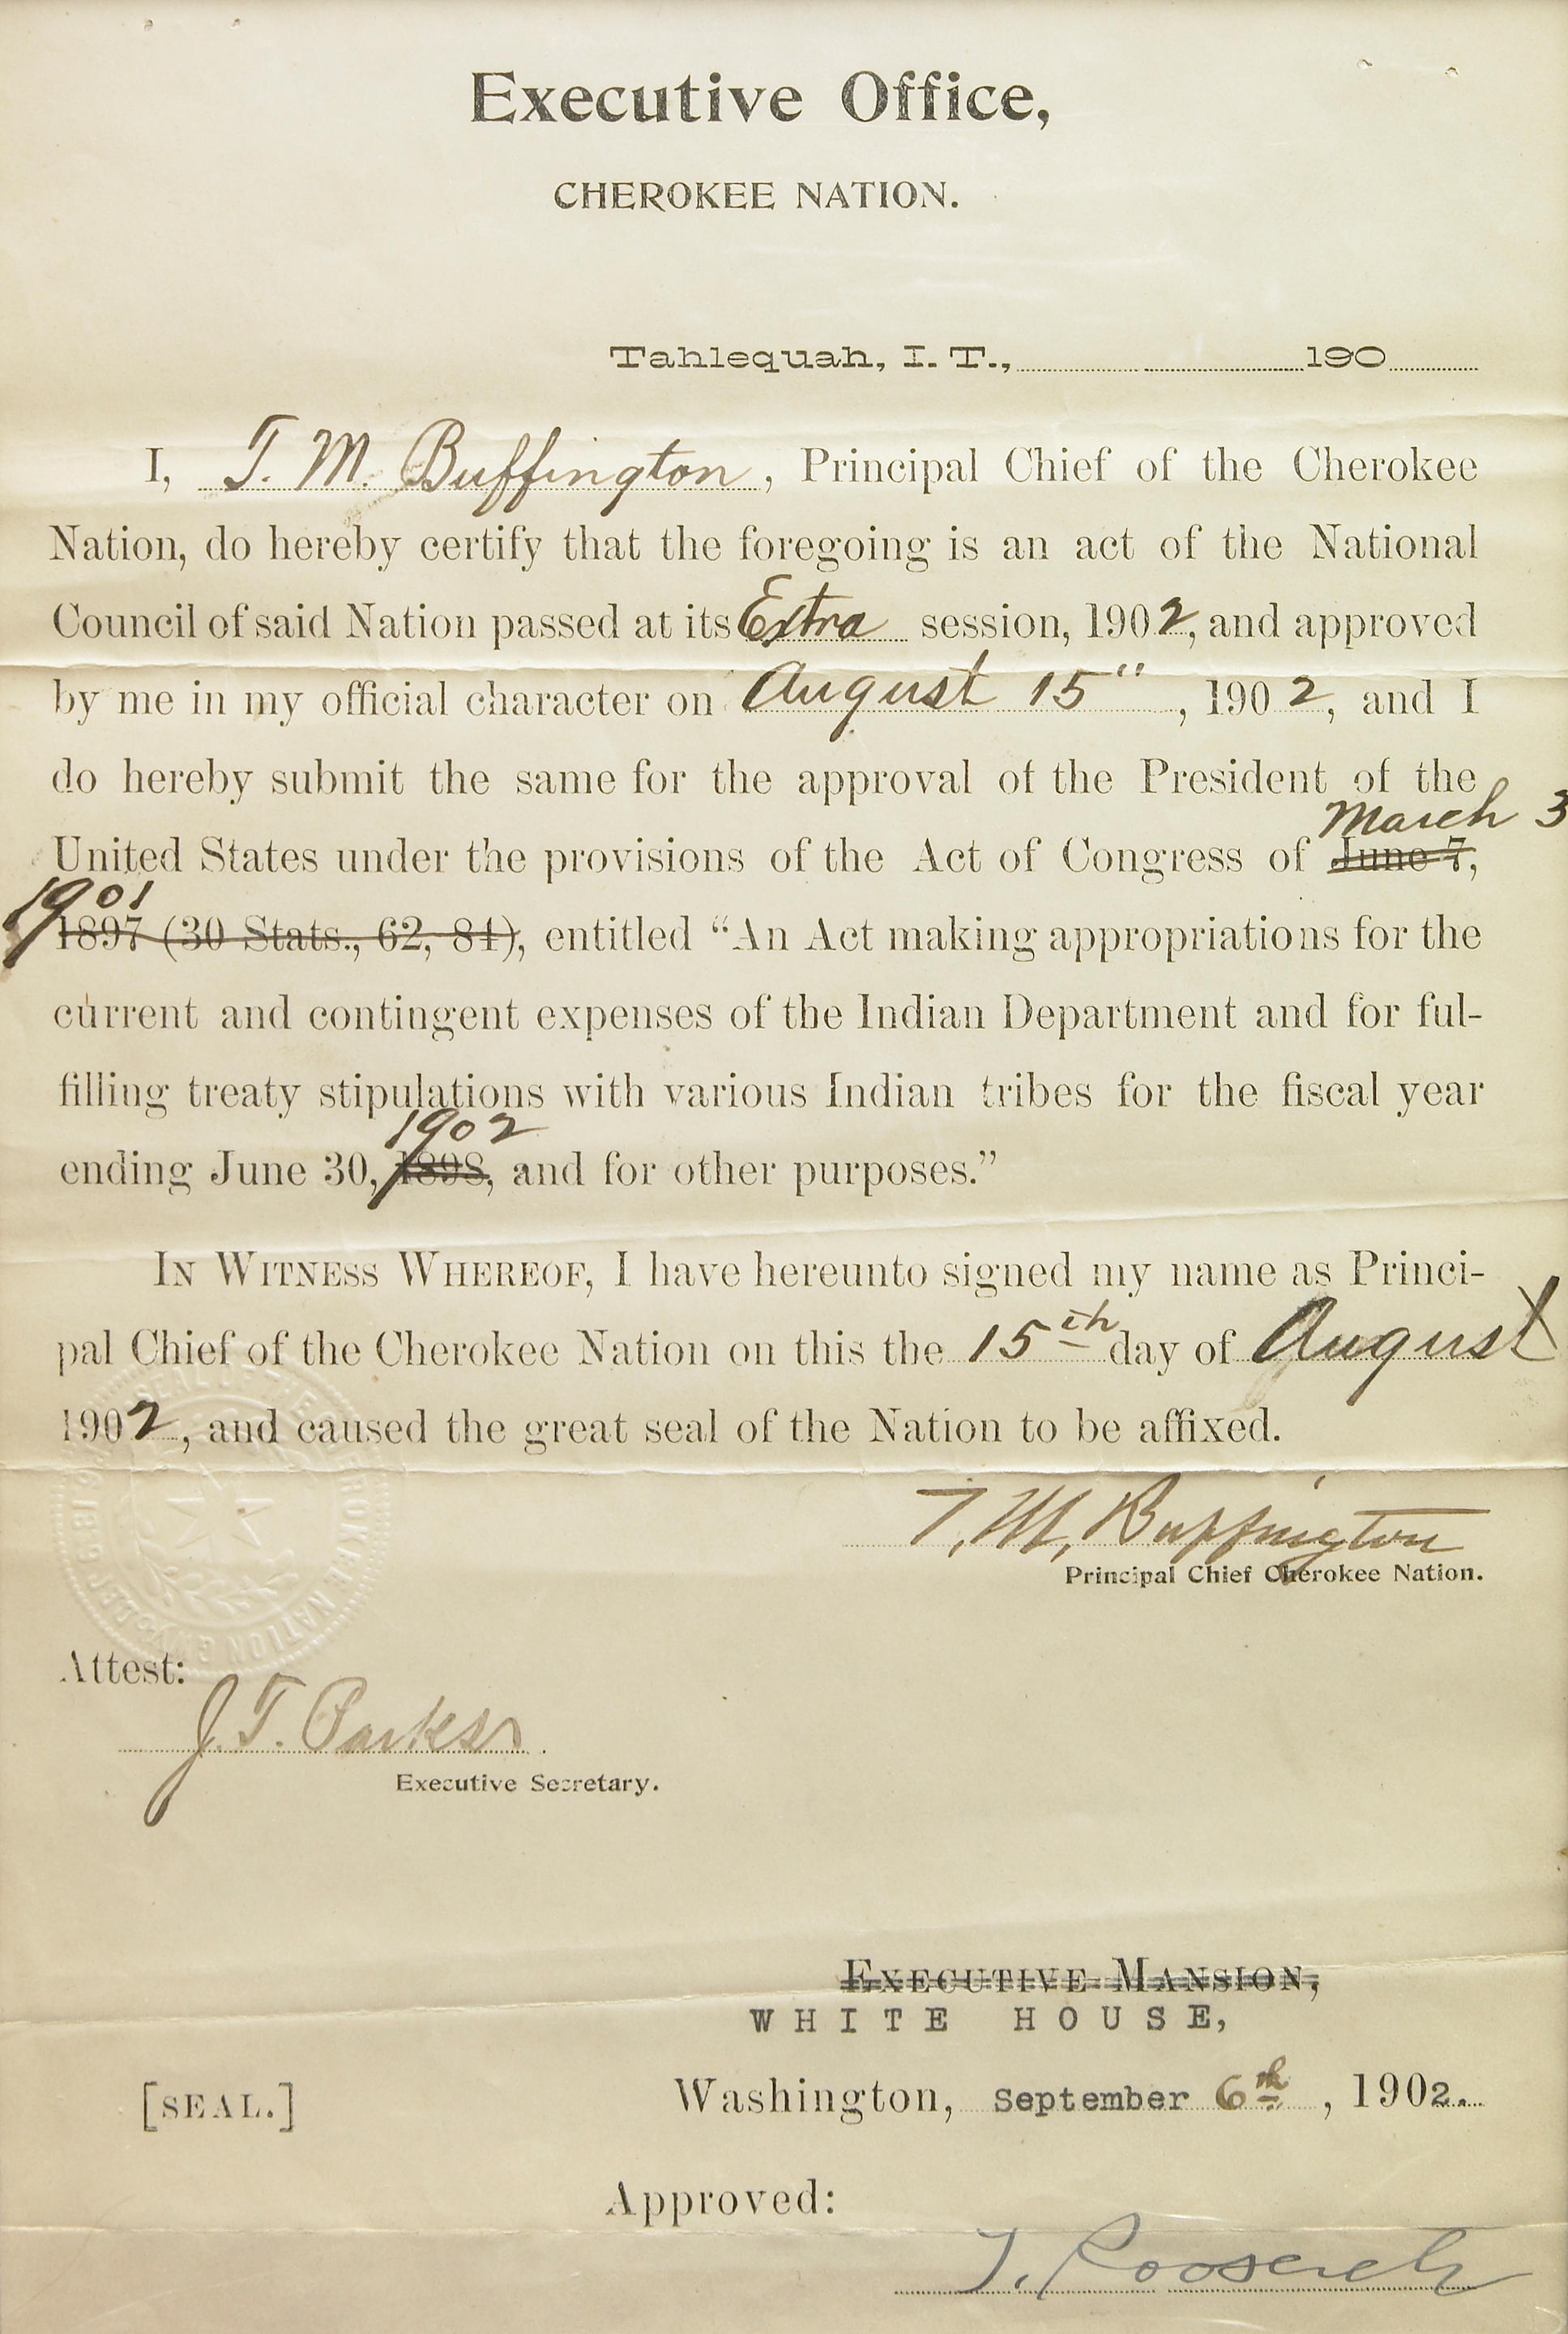 Executive Office,
CHEROKEE NATION.
Tahlequah, I. T., 190
I, T. M. Buffington, Principal Chief of the Cherokee
Nation, do hereby certify that the foregoing is an act of the National
Council of said Nation passed at its Extra session, 1902, and approved
by me in my official character on August 15", 1902, and I
do hereby submit the same for the approval of the President of the
March 3
United States under the provisions of the Act of Congress of June 7,
1901
1897 (30 Stats., 62, 84), entitled “An Act making appropriations for the
current and contingent expenses of the Indian Department and for ful-
filling treaty stipulations with various Indian tribes for the fiscal year
1902
ending June 30, 1898, and for other purposes.”
IN WITNESS WHEREOF, I have hereunto signed my name as Princi-
pal Chief of the Cherokee Nation on this the 15th day of August
1902, and caused the great seal of the Nation to be affixed.
T. M. Buffington
Principal Chief Cherokee Nation.
Attest:
J. T. Parks
Executive Secretary.
EXECUTIVE MANSION,
WHITE HOUSE,
[SEAL.]
Washington, September 6th, 1902.
Approved:
T. Roosevelt